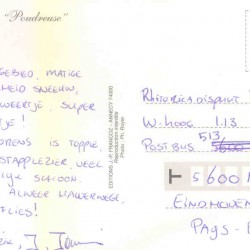 "Poudreuse"
GEBIED, MATIGE
HEID SNEEUW,
WEERTJE! SUPER
TJE!
ORENS IS TOPPIE,
STAPPLEZIER, VEEL
SCHOON.
ALWEER HALVERWEGE
FLIES!
EDITIONS J.-P. FRANCOZ - ANNECY 74000
Reproduction interdite
Photo : Ph. Royer
W-HOOG 1.13
513
POSTBUS 5600
T 5600
EINDHOVEN
PAYS-